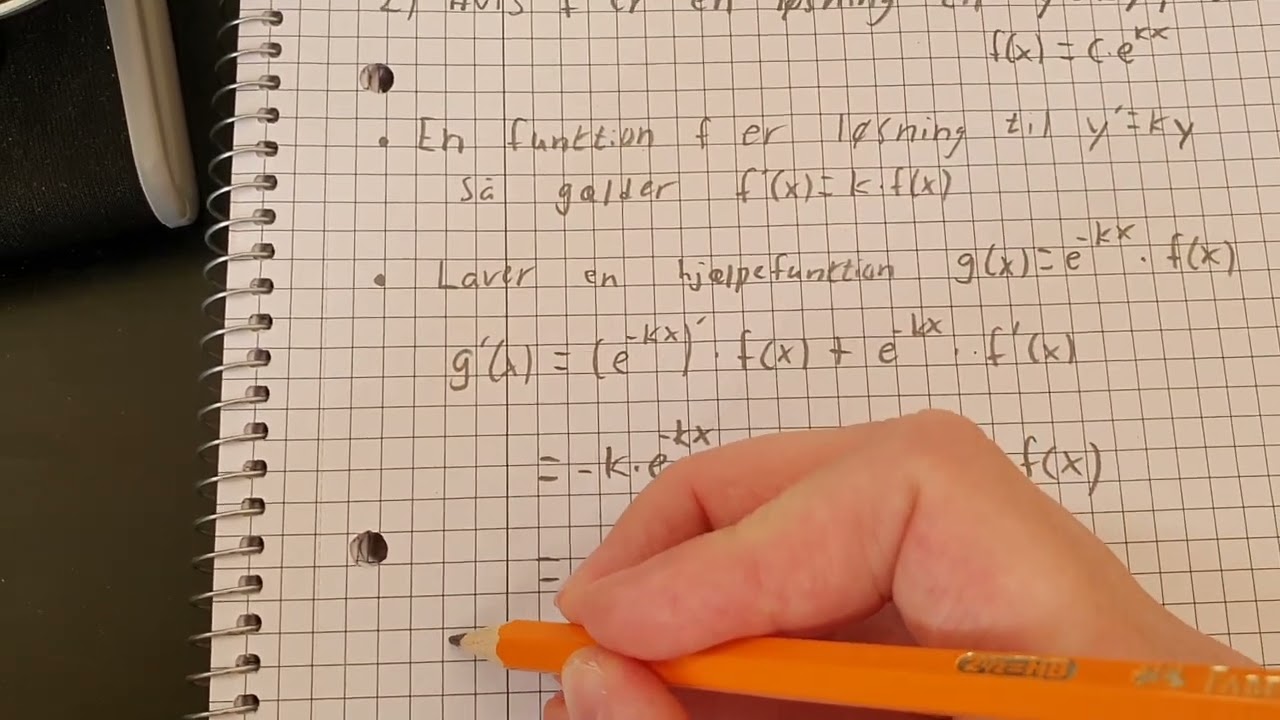 2) Hvis f er en løsning til
f(x) = c·e^kx
• En funktion f er løsning til y'=ky
Så gælder f'(x)=k·f(x)
• Laver en hjælpefunktion g(x)=e^-kx · f(x)
g'(x) = (e^-kx)' · f(x) + e^-kx · f'(x)
= -k·e^-kx f(x)
=